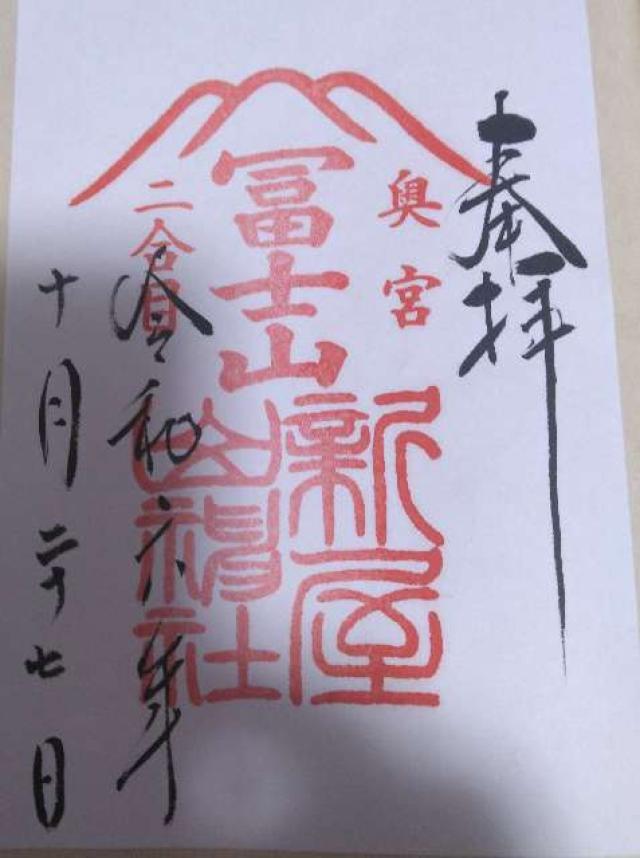 奉拝
奥宮
冨士山
二合目
新屋
山神社
令和六年
十月二十七日